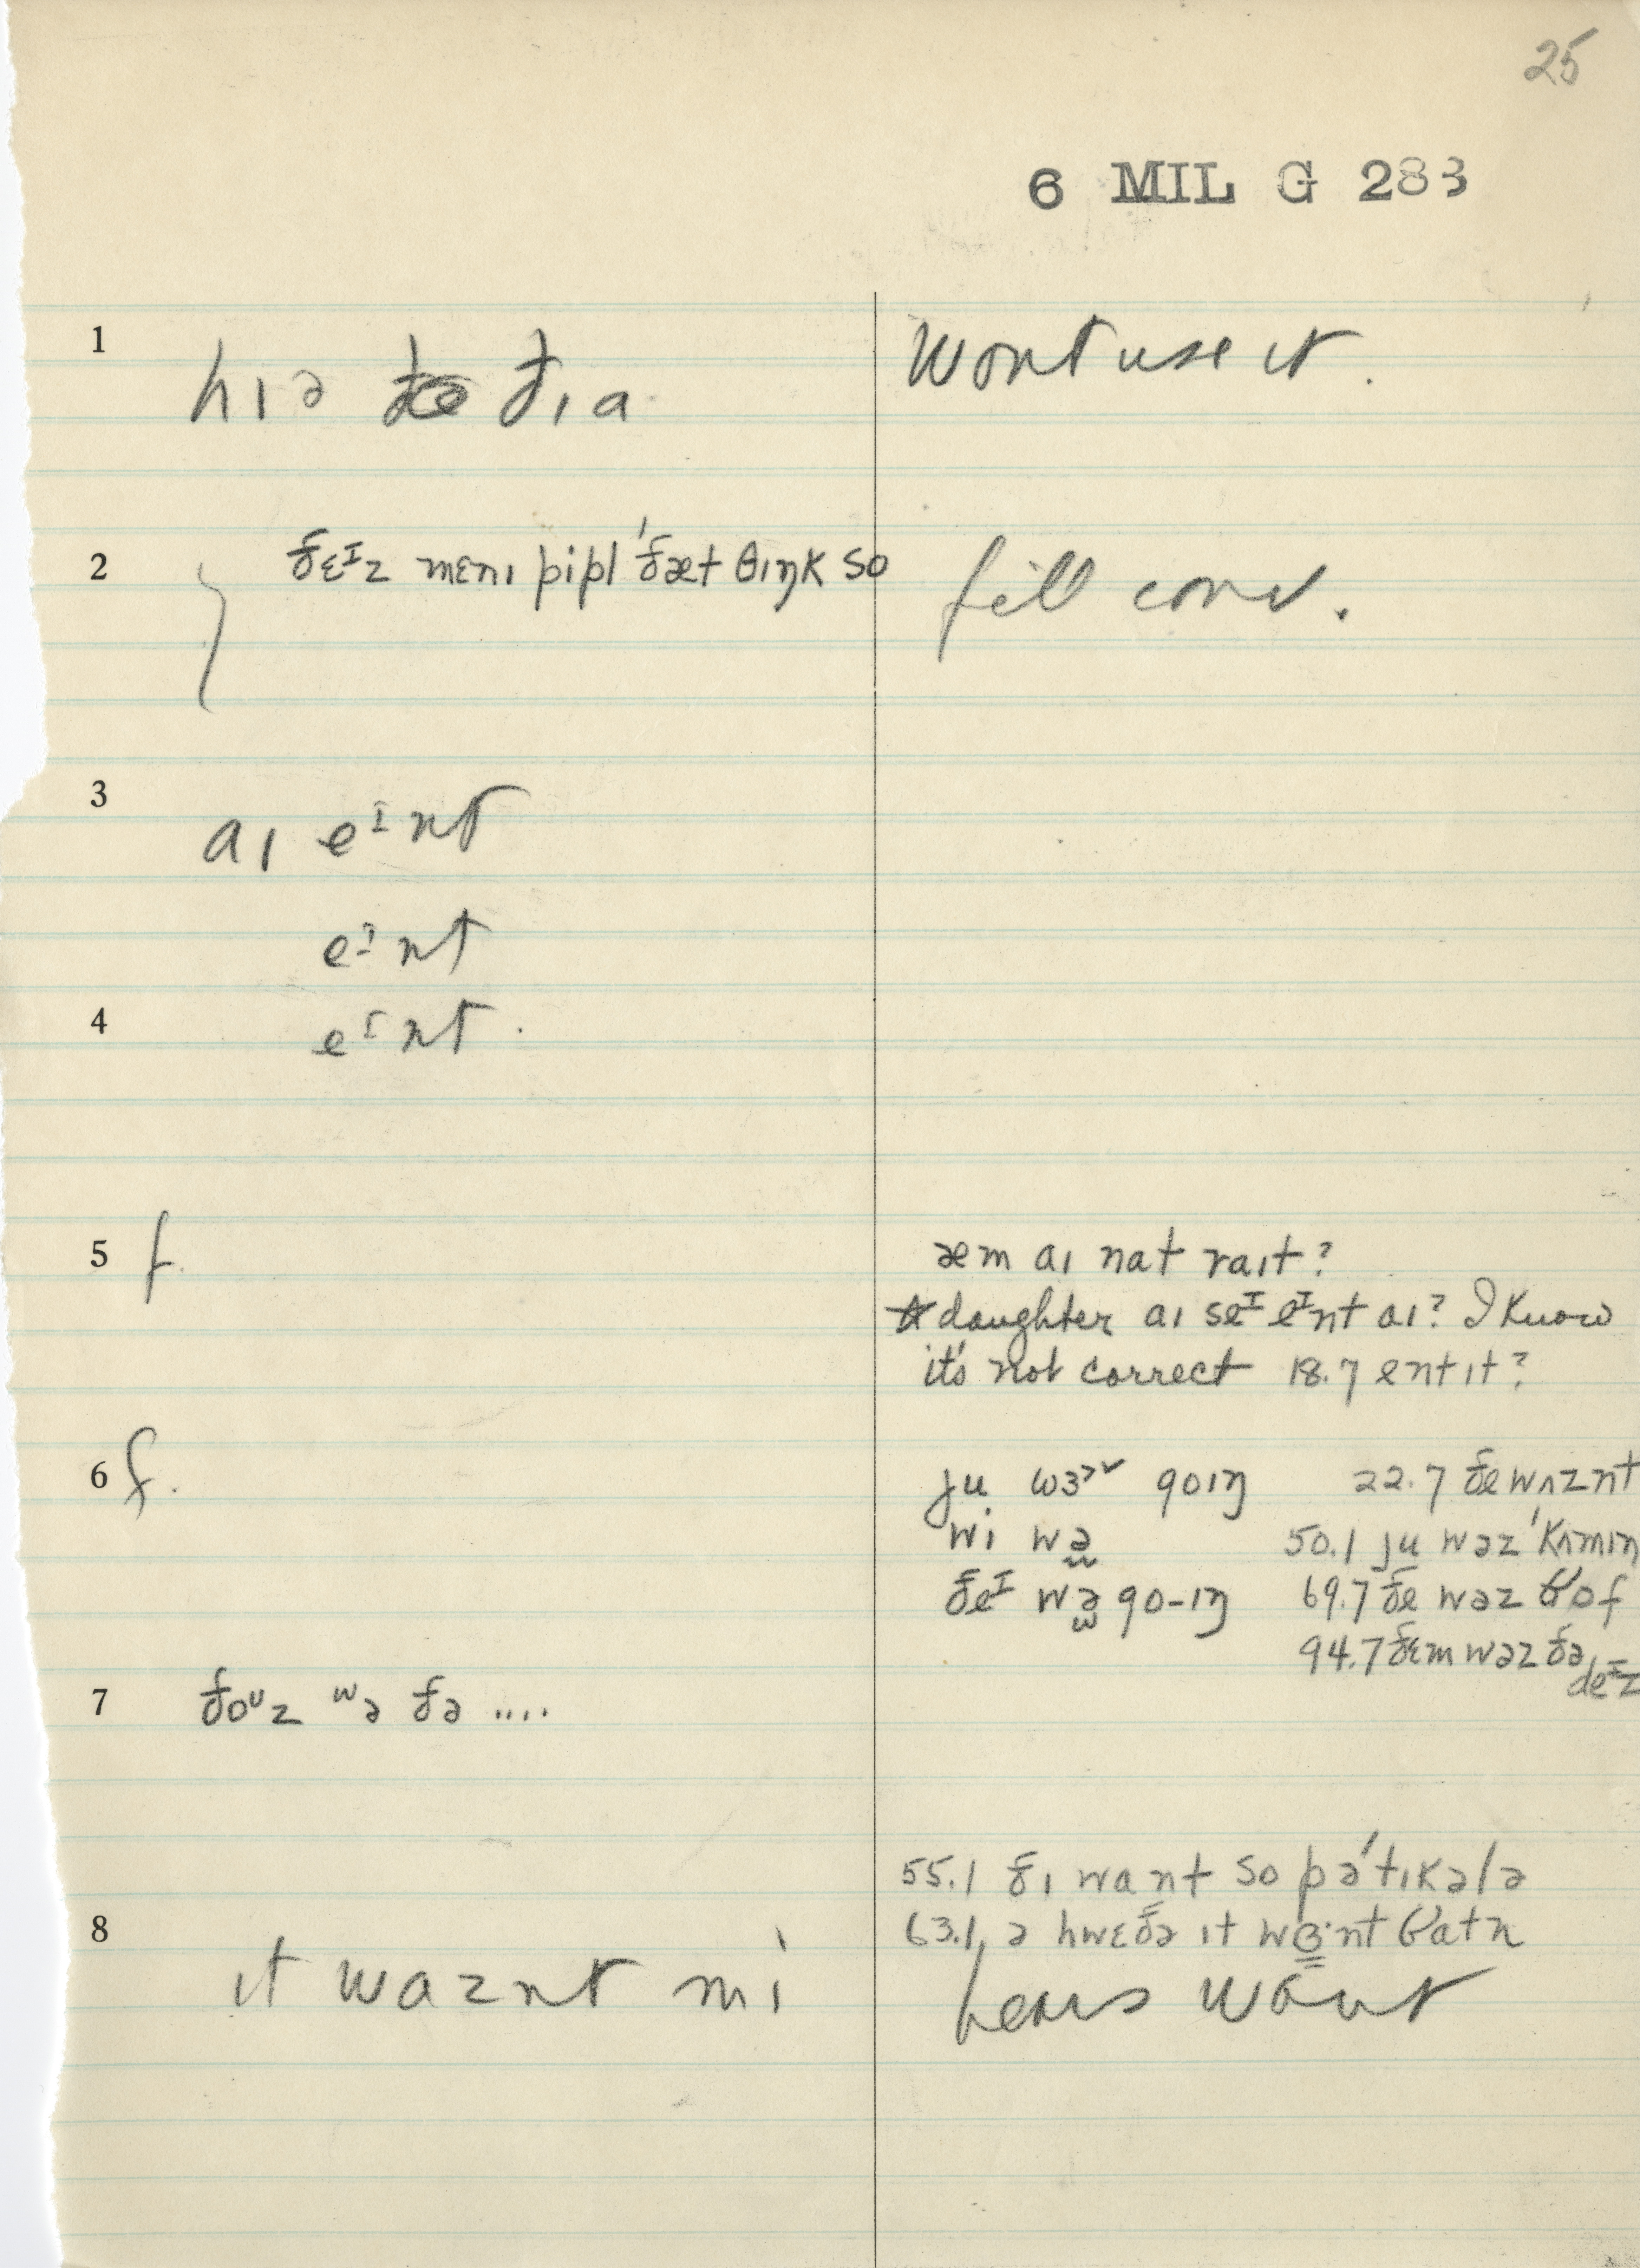 25
6 MIL G 283
1 hɪə ðɪa
Wont use it.
2 ðɛᴵz mɛnɪ pipl 'ðæt θɪŋk so
fill conv.
3 aɪ eᴵnt
eᴵnt
4 eᴵnt.
5 f.
æm aɪ nat raɪt?
daughter aɪ seᴵ eᴵnt aɪ? I know
it's not correct 18.7 entɪt?
6 f.
ju wɜ goɪŋ 22.7 ðe wʌznt
wi wə 50.1 ju wəz 'kʌmɪŋ
ðeᴵ wə go-ɪŋ 69.7 ðe wəz of
94.7 ðɛm wəz ðə deᴵz
7 ðoᶸz ʷə ðə ....
55.1 ðɪ want so pə'tɪkələ
8
63.1 ə hwɛðə ɪt nt
ɪt waznt mi
hears want